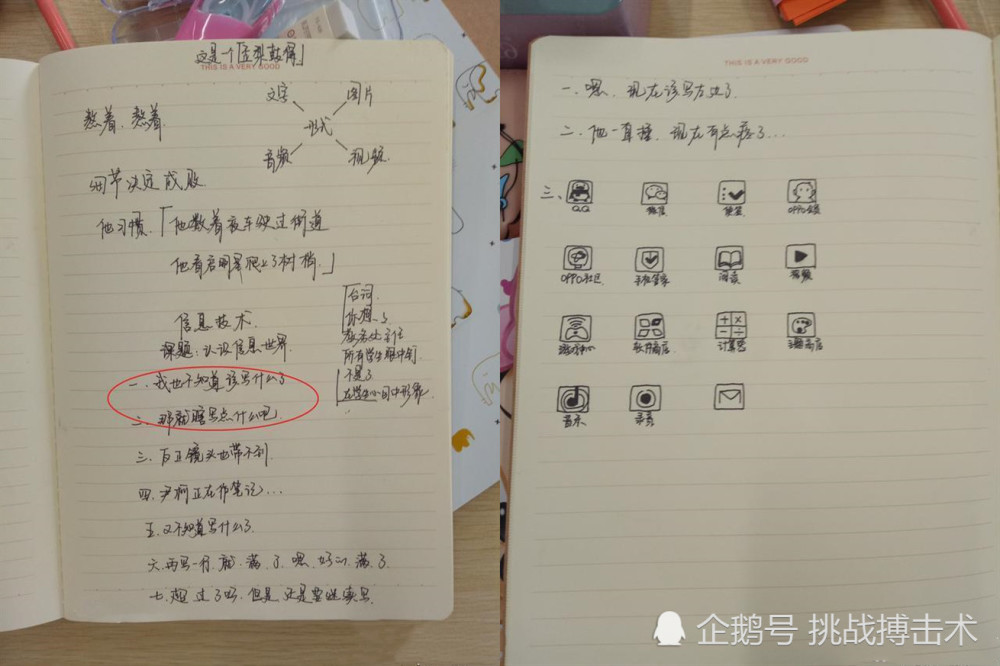 这是一个「五梨敲得」
THIS IS A VERY GOOD
文字
图片
形式
音频
视频
熬着、熬着
细节决定成败
他习惯「他数着夜车驶过街道
他看启明星爬上了树梢」
信息技术
课题:认识信息世界
台词
你想
所有学生眼中钉
不是了
一、我也不知道该写什么了
二、那就随写点什么吧
三、反正镜头也带不到
四、尹柯正在作笔记...
五、又不知道写什么了
六、再写一行就满了,嗯,好,满了
七、超过了呀,但是还是要继续写
THIS IS A VERY GOOD
一、嗯、现在该写左边了
二、他一直捶、现在有点疼了...
三、
QQ
微信
便签
OPPO
OPPO社区
手机管家
阅读
视频
游戏中心
软件商店
计算器
主题商店
音乐
录音
企鹅号 挑战搏击术